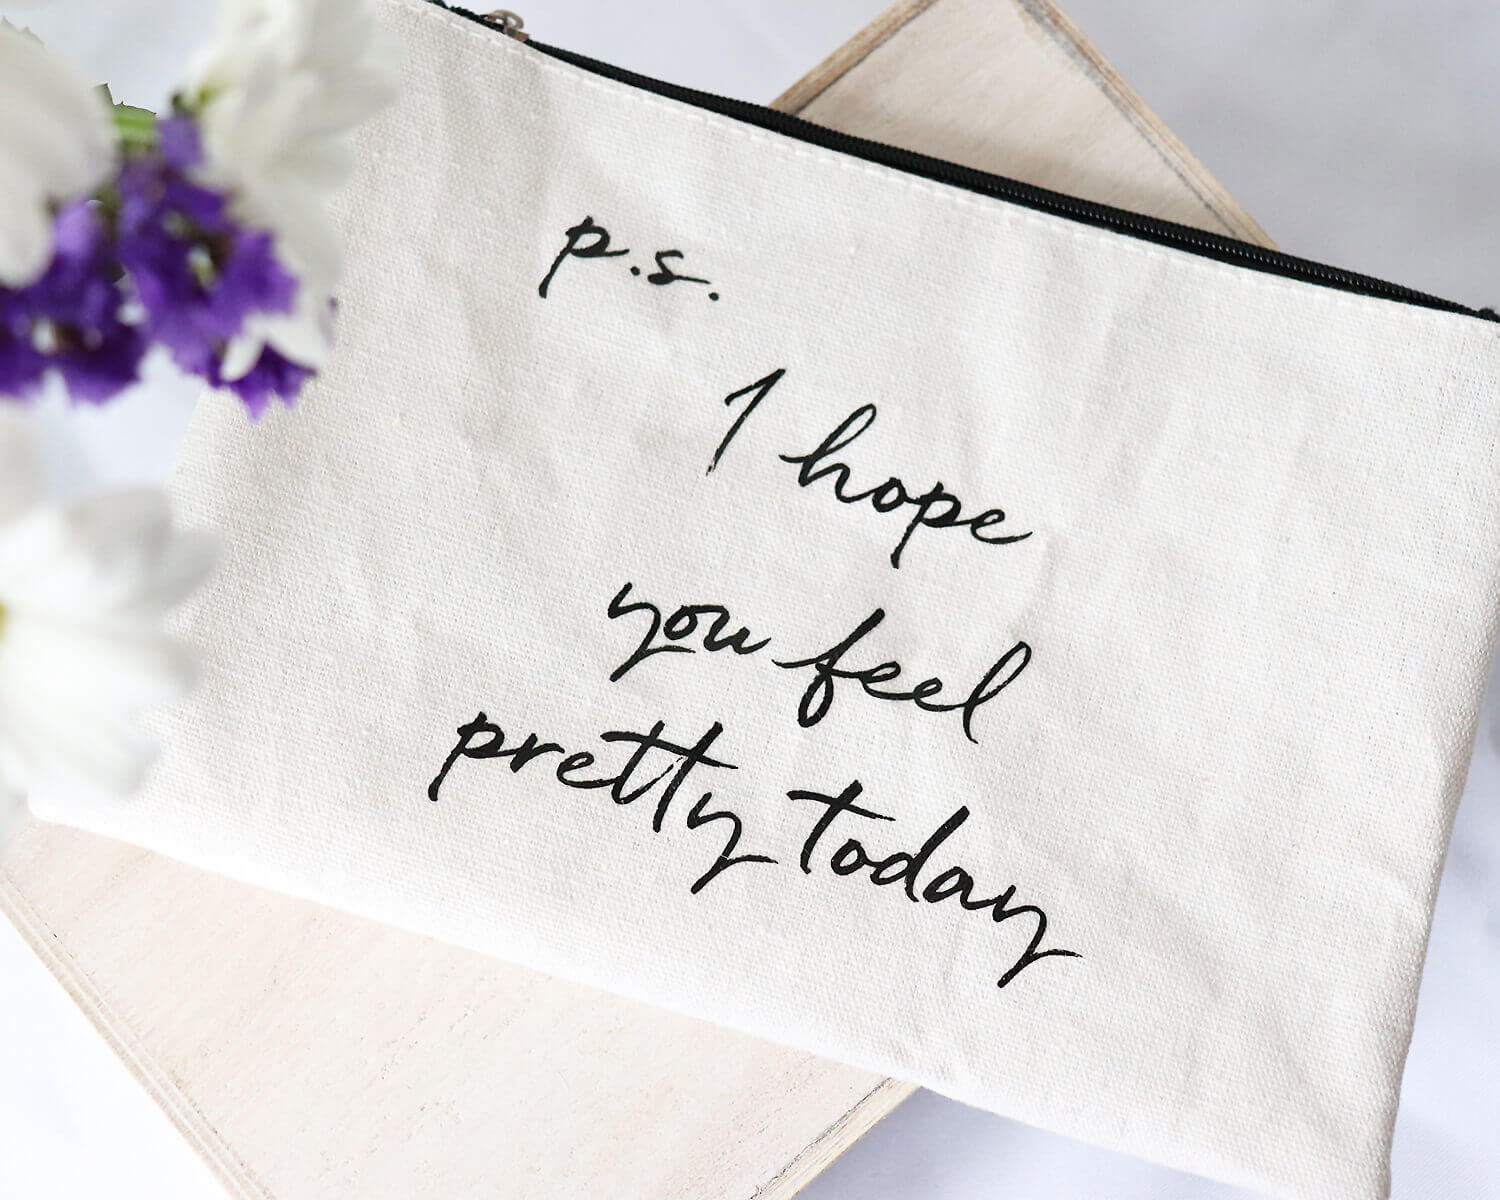 p.s.
I hope
you feel
pretty today